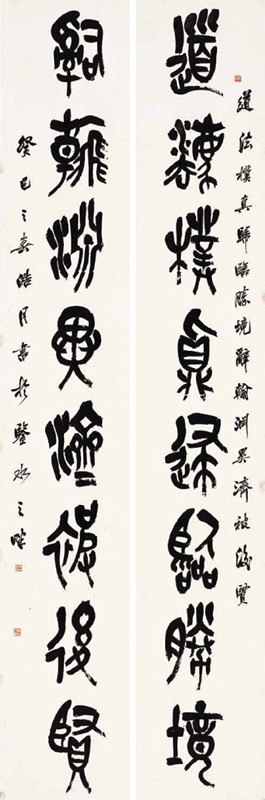 道法樸真歸臨勝境
道法樸真歸臨勝境辭翰淵異濟被後賢
辭翰淵異濟被後賢
癸巳之春睦月書於鑒水之畔